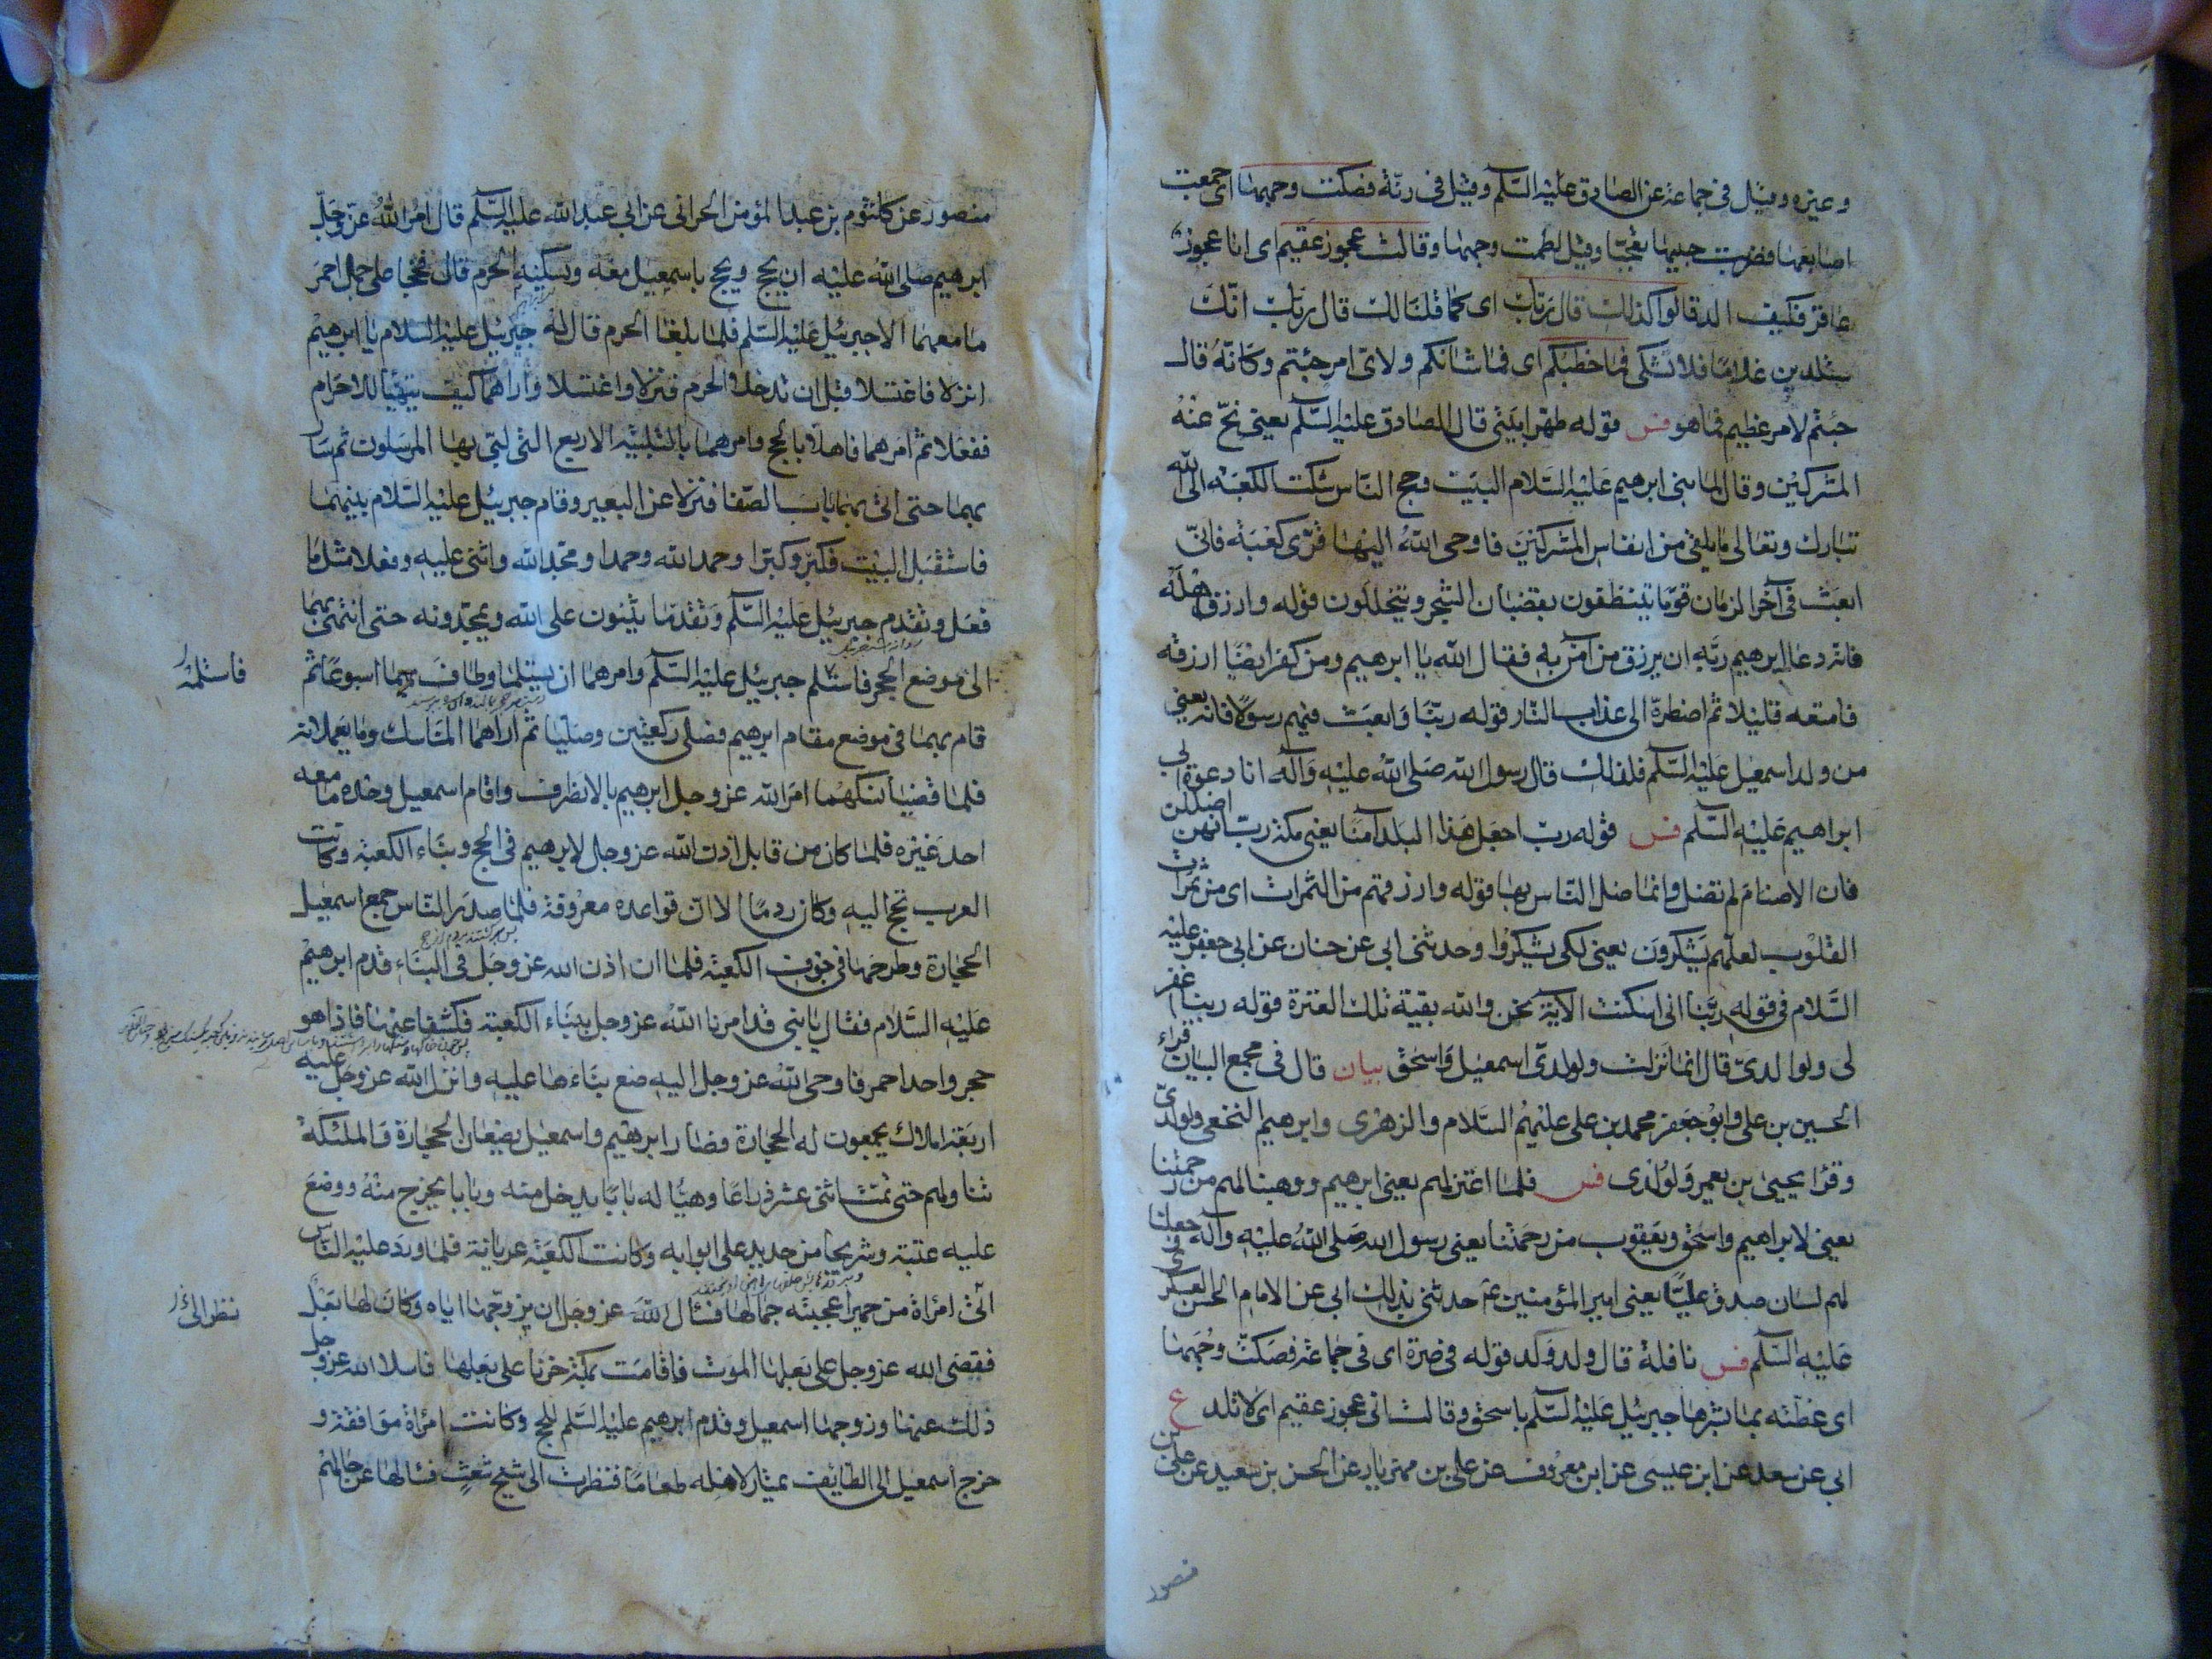 وغيره وقيل في جماعة عن الصادق عليه السلم وقيل في رنة فصكت وجهها اى جمعت
اصابعها فضربت جبينها تعجبا وقيل لطمت وجهها وقالت عجوز عقيم اى انا عجوز
عاقر فكيف الد قالوا كذلك قال ربك اى كما قلنا لك قال ربك انك
ستلدين غلاما فلا تشكى فما خطبكم اى فما شانكم ولاى امر جئتم وكانه قال
جئتم لامر عظيم فما هو فس قوله طهرا بيتى قال الصادق عليه السلم يعنى نح عنه
المشركين وقال لما بنى ابرهيم عليه السلام البيت وحج الناس شكت الكعبة الى الله
تبارك وتعالى ما يلقى من انفاس المشركين فاوحى الله اليها قرى كعبة فانى
ابعث في آخر الزمان قوما يتنظفون بقضبان الشجر ويتخللون قوله وارزق اهله
فانه دعا ابرهيم ربه ان يرزق من آمن به فقال الله يا ابرهيم ومن كفر ايضا ارزقه
فامتعه قليلا ثم اضطره الى عذاب النار قوله ربنا وابعث فيهم رسولا فانه يعني
من ولد اسمعيل عليه السلم فلذلك قال رسول الله صلى الله عليه وآله انا دعوة ابى
ابراهيم عليه السلم فس قوله رب اجعل هذا البلد آمنا يعنى مكة رب انهن اضللن
فان الاصنام لم تضل وانما ضل الناس بها قوله وارزقهم من الثمرات اى من ثمرات
القلوب لعلهم يشكرون يعنى لكى يشكروا وحدثنى ابى عن حنان عن ابى جعفر عليه
السلام في قوله ربنا انى اسكنت الآية نحن والله بقية تلك العترة قوله ربنا اغفر
لى ولوالدى قال انما نزلت ولولدى اسمعيل واسحق بيان قال في مجمع البيان قراء
الحسين بن على وابو جعفر محمد بن على عليهم السلام والزهرى وابرهيم النخعى ولولدى
وقرا يحيى بن يعمر ولولدى فس فلما اعتزلهم يعنى ابرهيم ووهبنا لهم من رحمتنا
يعنى لابراهيم واسحق ويعقوب من رحمتنا يعنى رسول الله صلى الله عليه وآله وجعلنا
لهم لسان صدق عليا يعنى امير المؤمنين ع حدثنى بذلك ابى عن الامام الحسن العسكرى
عليه السلم فس نافلة قال ولد ولد قوله في صرة اى في جماعة فصكت وجهها
اى غطته بما بشرها جبرئيل عليه السلم باسحق وقالت انى عجوز عقيم اى لا تلد ع
ابى عن سعد عن ابن عيسى عن ابن معروف عن على بن مهزيار عن الحسن بن سعيد عن على بن
منصور
منصور عن كلثوم بن عبد المؤمن الحرانى عن ابى عبد الله عليه السلم قال امر الله عز وجل
ابرهيم صلى الله عليه ان يحج ويحج باسمعيل معه ويسكنه الحرم قال فحجا على جمل احمر
ما معهما الا جبرئيل عليه السلم فلما بلغا الحرم قال له جبرئيل عليه السلام يا ابرهيم
انزلا فاغتسلا قبل ان تدخلا الحرم فنزلا واغتسلا واراهما كيف يتهيأ للاحرام
ففعلا ثم امرهما فاهلا بالحج وامرهما بالتلبية الاربع التى لبى بها المرسلون ثم سار
بهما حتى اتى بهما باب الصفا فنزلا عن البعير وقام جبرئيل عليه السلام بينهما
فاستقبل البيت فكبر وكبرا وحمد الله وحمدا ومجد الله واثنى عليه وفعلا مثل ما
فعل وتقدم جبرئيل عليه السلم وتقدما يثنون على الله ويمجدونه حتى انتهى بهما
الى موضع الحجر فاستلم جبرئيل عليه السلم وامرهما ان يستلما وطاف بهما اسبوعا ثم
فاستلمه
قام بهما في موضع مقام ابرهيم فصلى ركعتين وصليا ثم اراهما المناسك وما يعملانه
فلما قضيا نسكهما امر الله عز وجل ابرهيم بالانصراف واقام اسمعيل وحده ما معه
احد غيره فلما كان من قابل اذن الله عز وجل لابرهيم في الحج وبناء الكعبة وكانت
العرب تحج اليه وكان ردما الا ان قواعده معروفة فلما صدر الناس جمع اسمعيل
الحجارة وطرحها في جوف الكعبة فلما ان اذن الله عز وجل في البناء قدم ابرهيم
عليه السلام فقال يا بنى قد امرنا الله عز وجل ببناء الكعبة فكشفا عنها فاذا هو
حجر واحد احمر فاوحى الله عز وجل اليه ضع بناءها عليه وانزل الله عز وجل عليه
اربعة املاك يجمعون له الحجارة فصار ابرهيم واسمعيل يضعان الحجارة والملئكة
تناولهم حتى تمت اثنى عشر ذراعا وهيأ له بابا يدخل منه وبابا يخرج منه ووضع
عليه عتبة وشريجا من حديد على ابوابه وكانت الكعبة عريانة فلما ورد عليه الناس
اتى امرأة من حمير اعجبته جمالها فسئال الله عز وجل ان يزوجها اياه وكان لها بعل
نظر الى
فقضى الله عز وجل على بعلها الموت فاقامت بمكة حزنا على بعلها فاسلا الله عز وجل
ذلك عنها وزوجها اسمعيل وقدم ابرهيم عليه السلم للحج وكانت امرأة موافقة و
خرج اسمعيل الى الطايف يمتار لاهله طعاما فنظرت الى شيخ شعث فسئالها عن حالهم